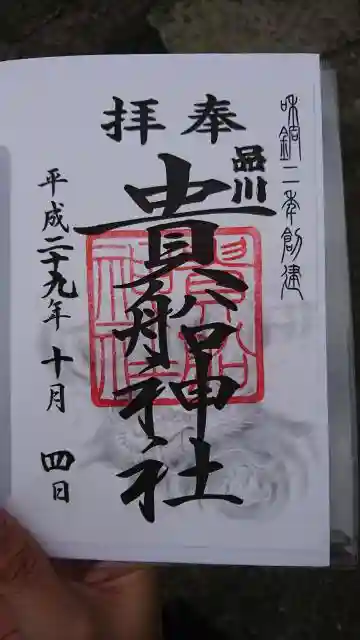 和銅二年創建
奉拝
品川
貴船神社
平成二十九年 十月 四日